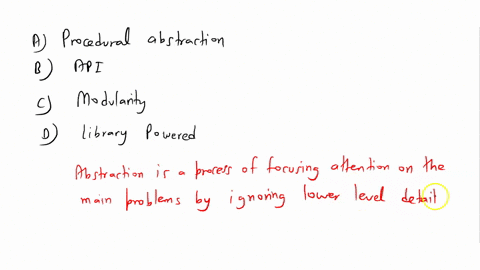 A) Procedural abstraction
B) API
C) Modularity
D) Library Powered
Abstraction is a process of focusing attention on the
main problems by ignoring lower level detail